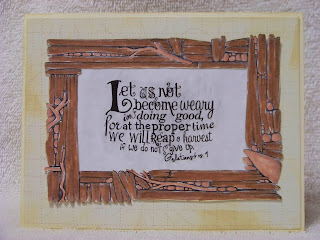 Let us not
become weary
in doing good,
for at the proper time
we will Reap a harvest
if we do not give up.
Galatians 6:9